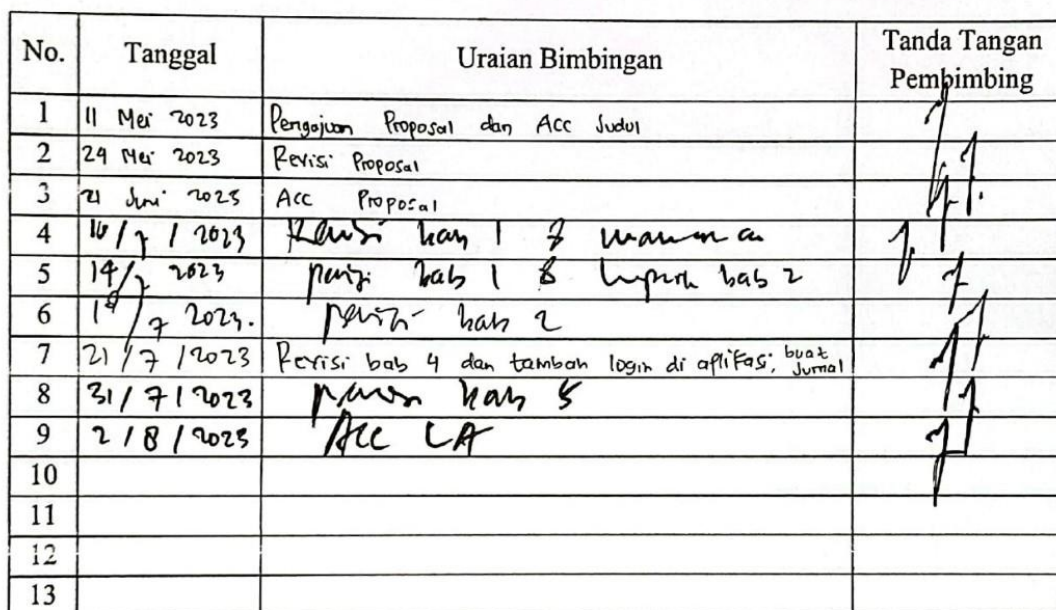 No. Tanggal Uraian Bimbingan Tanda Tangan Pembimbing
1 11 Mei 2023 Pengajuan Proposal dan Acc Judul
2 24 Mei 2023 Revisi Proposal
3 21 Juni 2023 Acc Proposal
4 /7/2023 Revisi bab 1 &
5 14/7 2023 revisi bab 1 & bab 2
6 /7 2023. revisi bab 2
7 21/7/2023 Revisi bab 4 dan tambah login di aplikasi, buat Jurnal
8 31/7/2023 revisi bab 5
9 2/8/2023 Acc LA
10
11
12
13